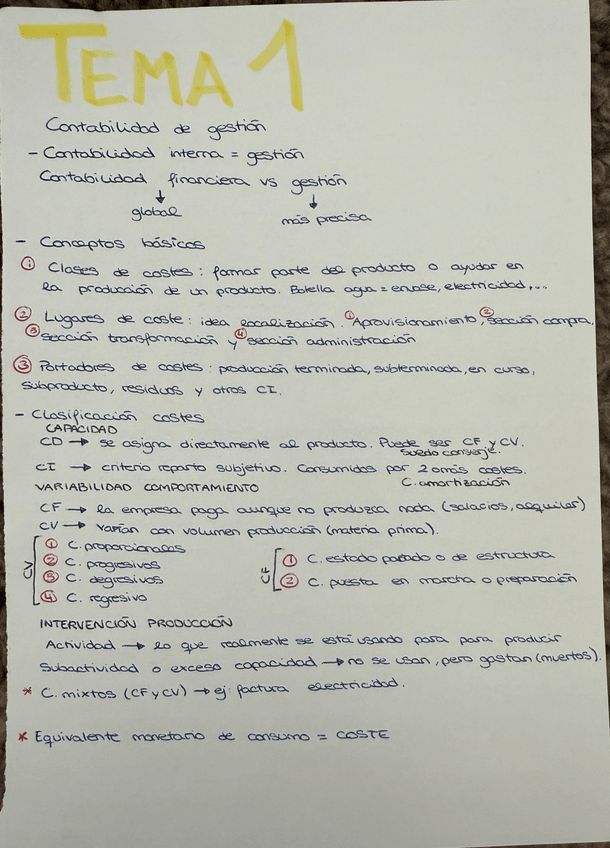 TEMA 1
Contabilidad de gestión
- Contabilidad interna = gestión
Contabilidad financiera vs gestión
↓ ↓
global más precisa
- Conceptos básicos
① Clases de costes: formar parte del producto o ayudar en
la producción de un producto. Botella agua = envase, electricidad,...
② Lugares de coste: idea localización. ① Aprovisionamiento, ② sección compra,
③ sección transformación y ④ sección administración
③ Portadores de costes: producción terminada, subterminada, en curso,
subproducto, residuos y otros CI.
- Clasificación costes
CAPACIDAD
CD → se asigna directamente al producto. Puede ser CF y CV.
sueldo conserje.
CI → criterio reparto subjetivo. Consumidos por 2 o más costes.
C. amortización
VARIABILIDAD COMPORTAMIENTO
CF → la empresa paga aunque no produzca nada (salarios, alquiler)
CV → varían con volumen producción (materia prima).
CV ① C. proporcionales
② C. progresivos
③ C. degresivos
④ C. regresivo
CF ① C. estado parado o de estructura
② C. puesta en marcha o preparación
INTERVENCIÓN PRODUCCIÓN
Actividad → lo que realmente se está usando para para producir
Subactividad o exceso capacidad → no se usan, pero gastan (muertos).
* C. mixtos (CF y CV) → ej: factura electricidad.
* Equivalente monetario de consumo = COSTE